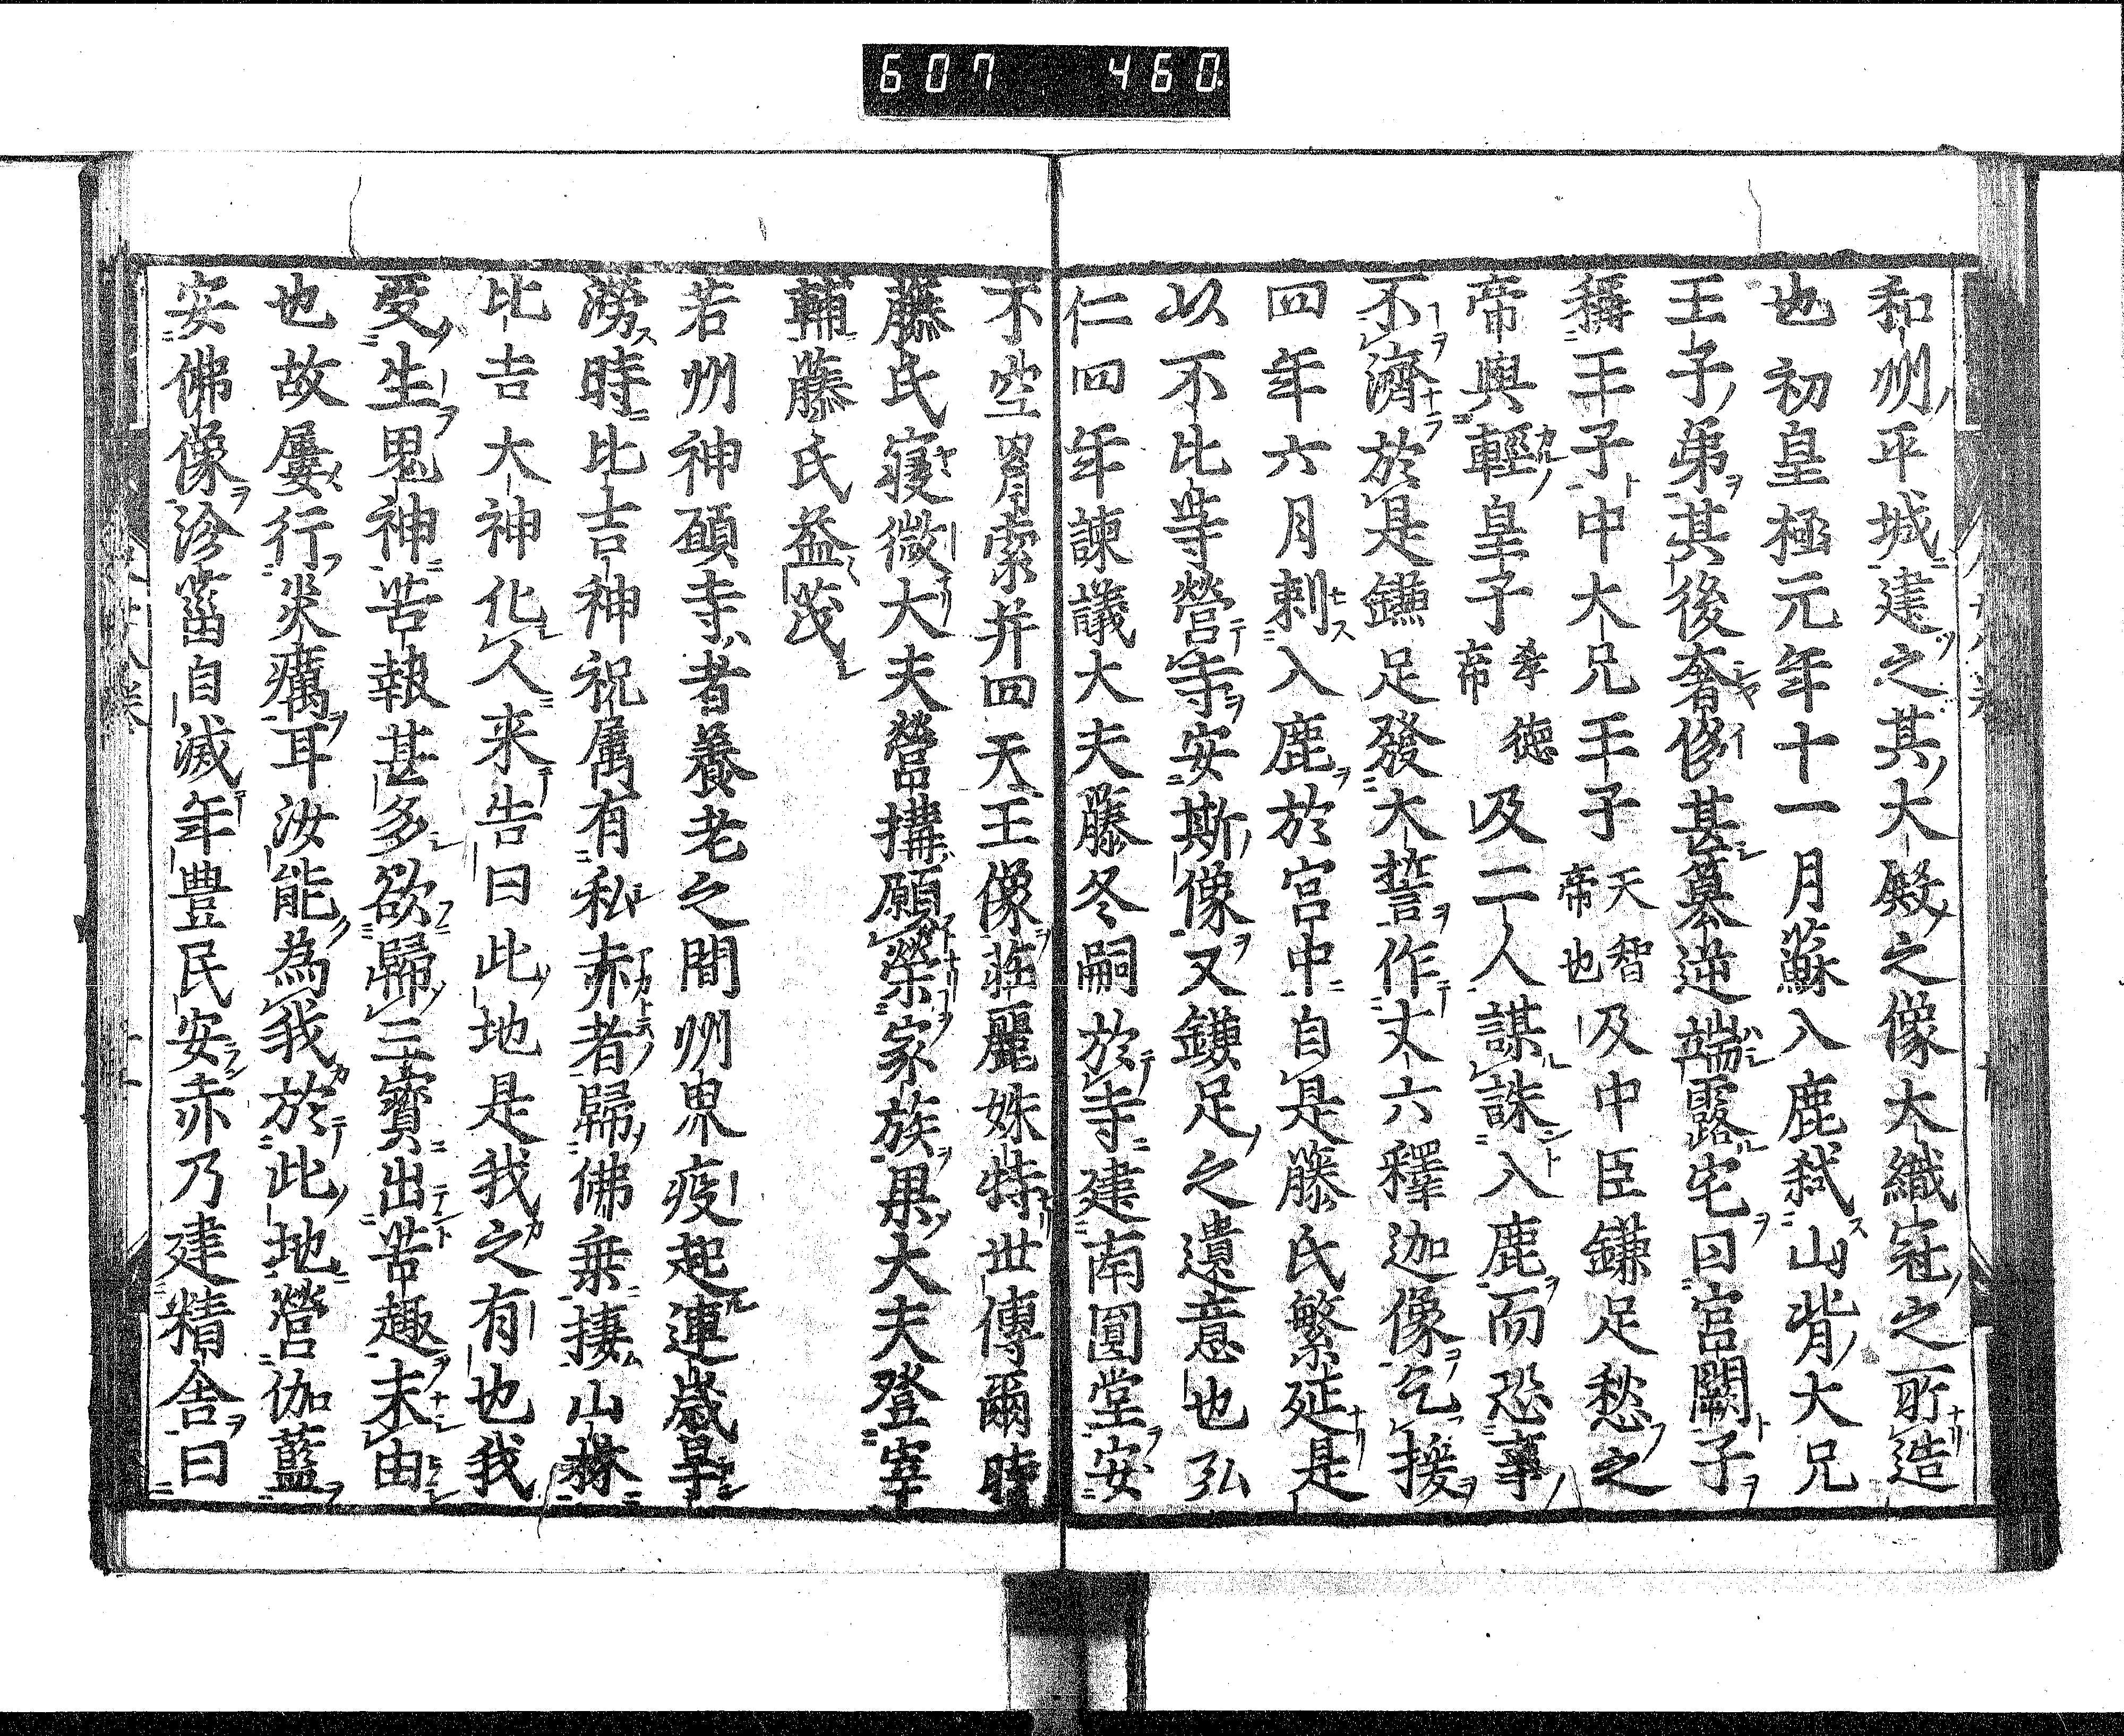 607 460
和州平城建之其大殿之像大織冠之所造
也初皇極元年十一月蘇入鹿弑山背大兄
王子弟其後奢侈甚篡逆端露宅曰宮闕子
稱王子中大兄王子天智帝也及中臣鎌足愁之
帝與輕皇子孝德帝及二人謀誅入鹿而恐事
不濟於是鎌足發大誓作丈六釋迦像乞援
四年六月刺入鹿於宮中自是藤氏繁延是
以不比等營寺安斯像又鎌足之遺意也弘
仁四年諫議大夫藤冬嗣於寺建南圓堂安
不空罥索并四天王像莊麗姝特世傳爾時
藤氏寢微大夫營搆願榮家族果大夫登宰
輔藤氏益茂
若州神願寺者養老之間州界疫起連歲旱
澇時比吉神祝屬有私赤者歸佛乗捿山林
比吉大神化人来告曰此地是我之有也我
受生鬼神苦報甚多欲歸三寳出苦趣末由
也故屢行災癘耳汝能為我於此地營伽藍
安佛像沴菑自滅年豊民安赤乃建精舎曰